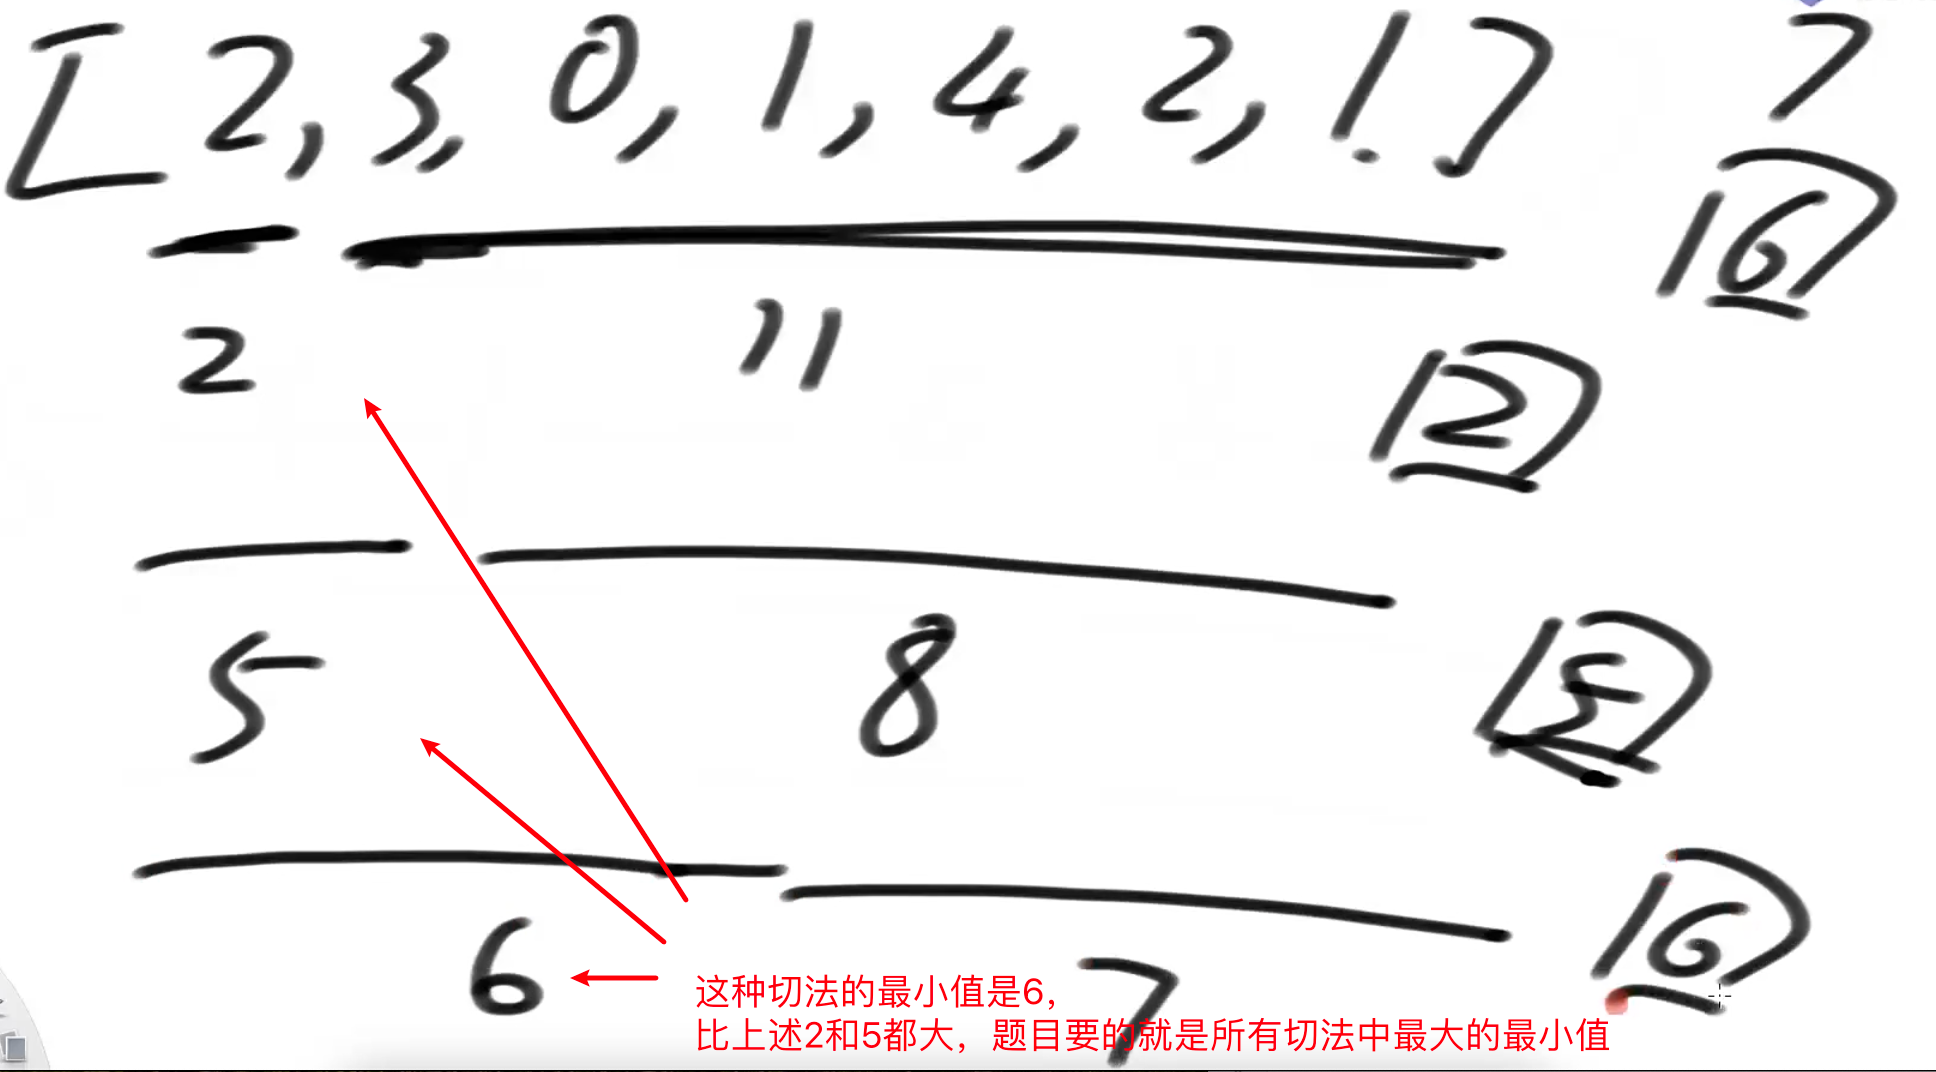 [2, 3, 0, 1, 4, 2, 1.] 7
16
2 11
12
5 8
15
6 7 16
这种切法的最小值是6，
比上述2和5都大，题目要的就是所有切法中最大的最小值